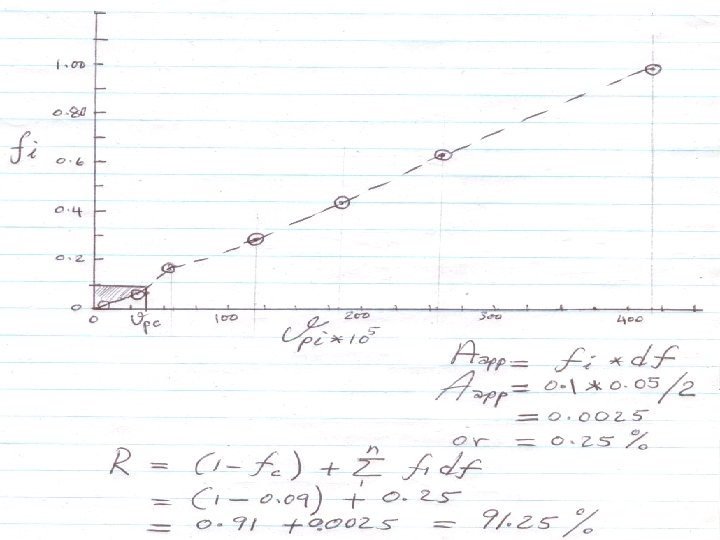 1.00
0.80
fi
0.6
0.4
0.2
0
0 υpc 100 200 300 400
υpi * 10⁵
Aapp = fi * df
Aapp = 0.1 * 0.05/2
= 0.0025
or = 0.25 %
R = (1 - fc) + Σ₁ⁿ fi df
= (1 - 0.09) + 0.25
= 0.91 + 0.0025 = 91.25 %